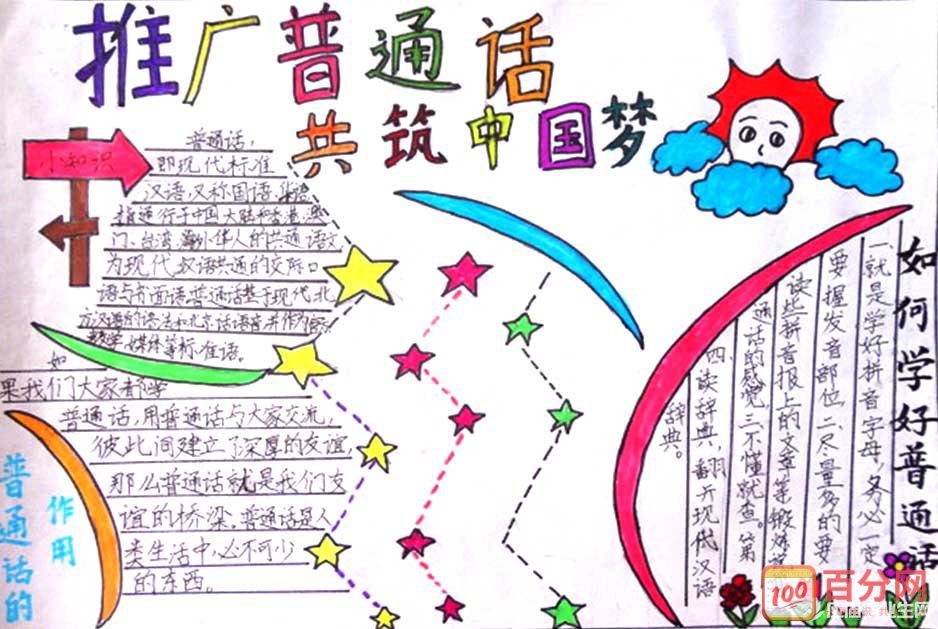 推广普通话
共筑中国梦
小知识
普通话,
即现代标准
汉语,又称国语、华语
指通行于中国大陆和香港、澳
门、台湾、海外华人的共通语文
为现代汉语共通的交际口
语与书面语。普通话基于现代北
方汉语的语法和北京话语音并作为
教学、媒体等标准语。
普通话的
作用
如
果我们大家都学
普通话,用普通话与大家交流,
彼此间建立了深厚的友谊,
那么普通话就是我们友
谊的桥梁。普通话是人
类生活中,必不可少
的东西。
如何学好普通话
一、就是学好拼音字母,务必一定
要握发音部位,二、尽量多的要
读些拼音报上的文章等锻炼说
通话的感觉,三、不懂就查。第
四、读辞典,翻开现代汉语
辞典。
100
百分网